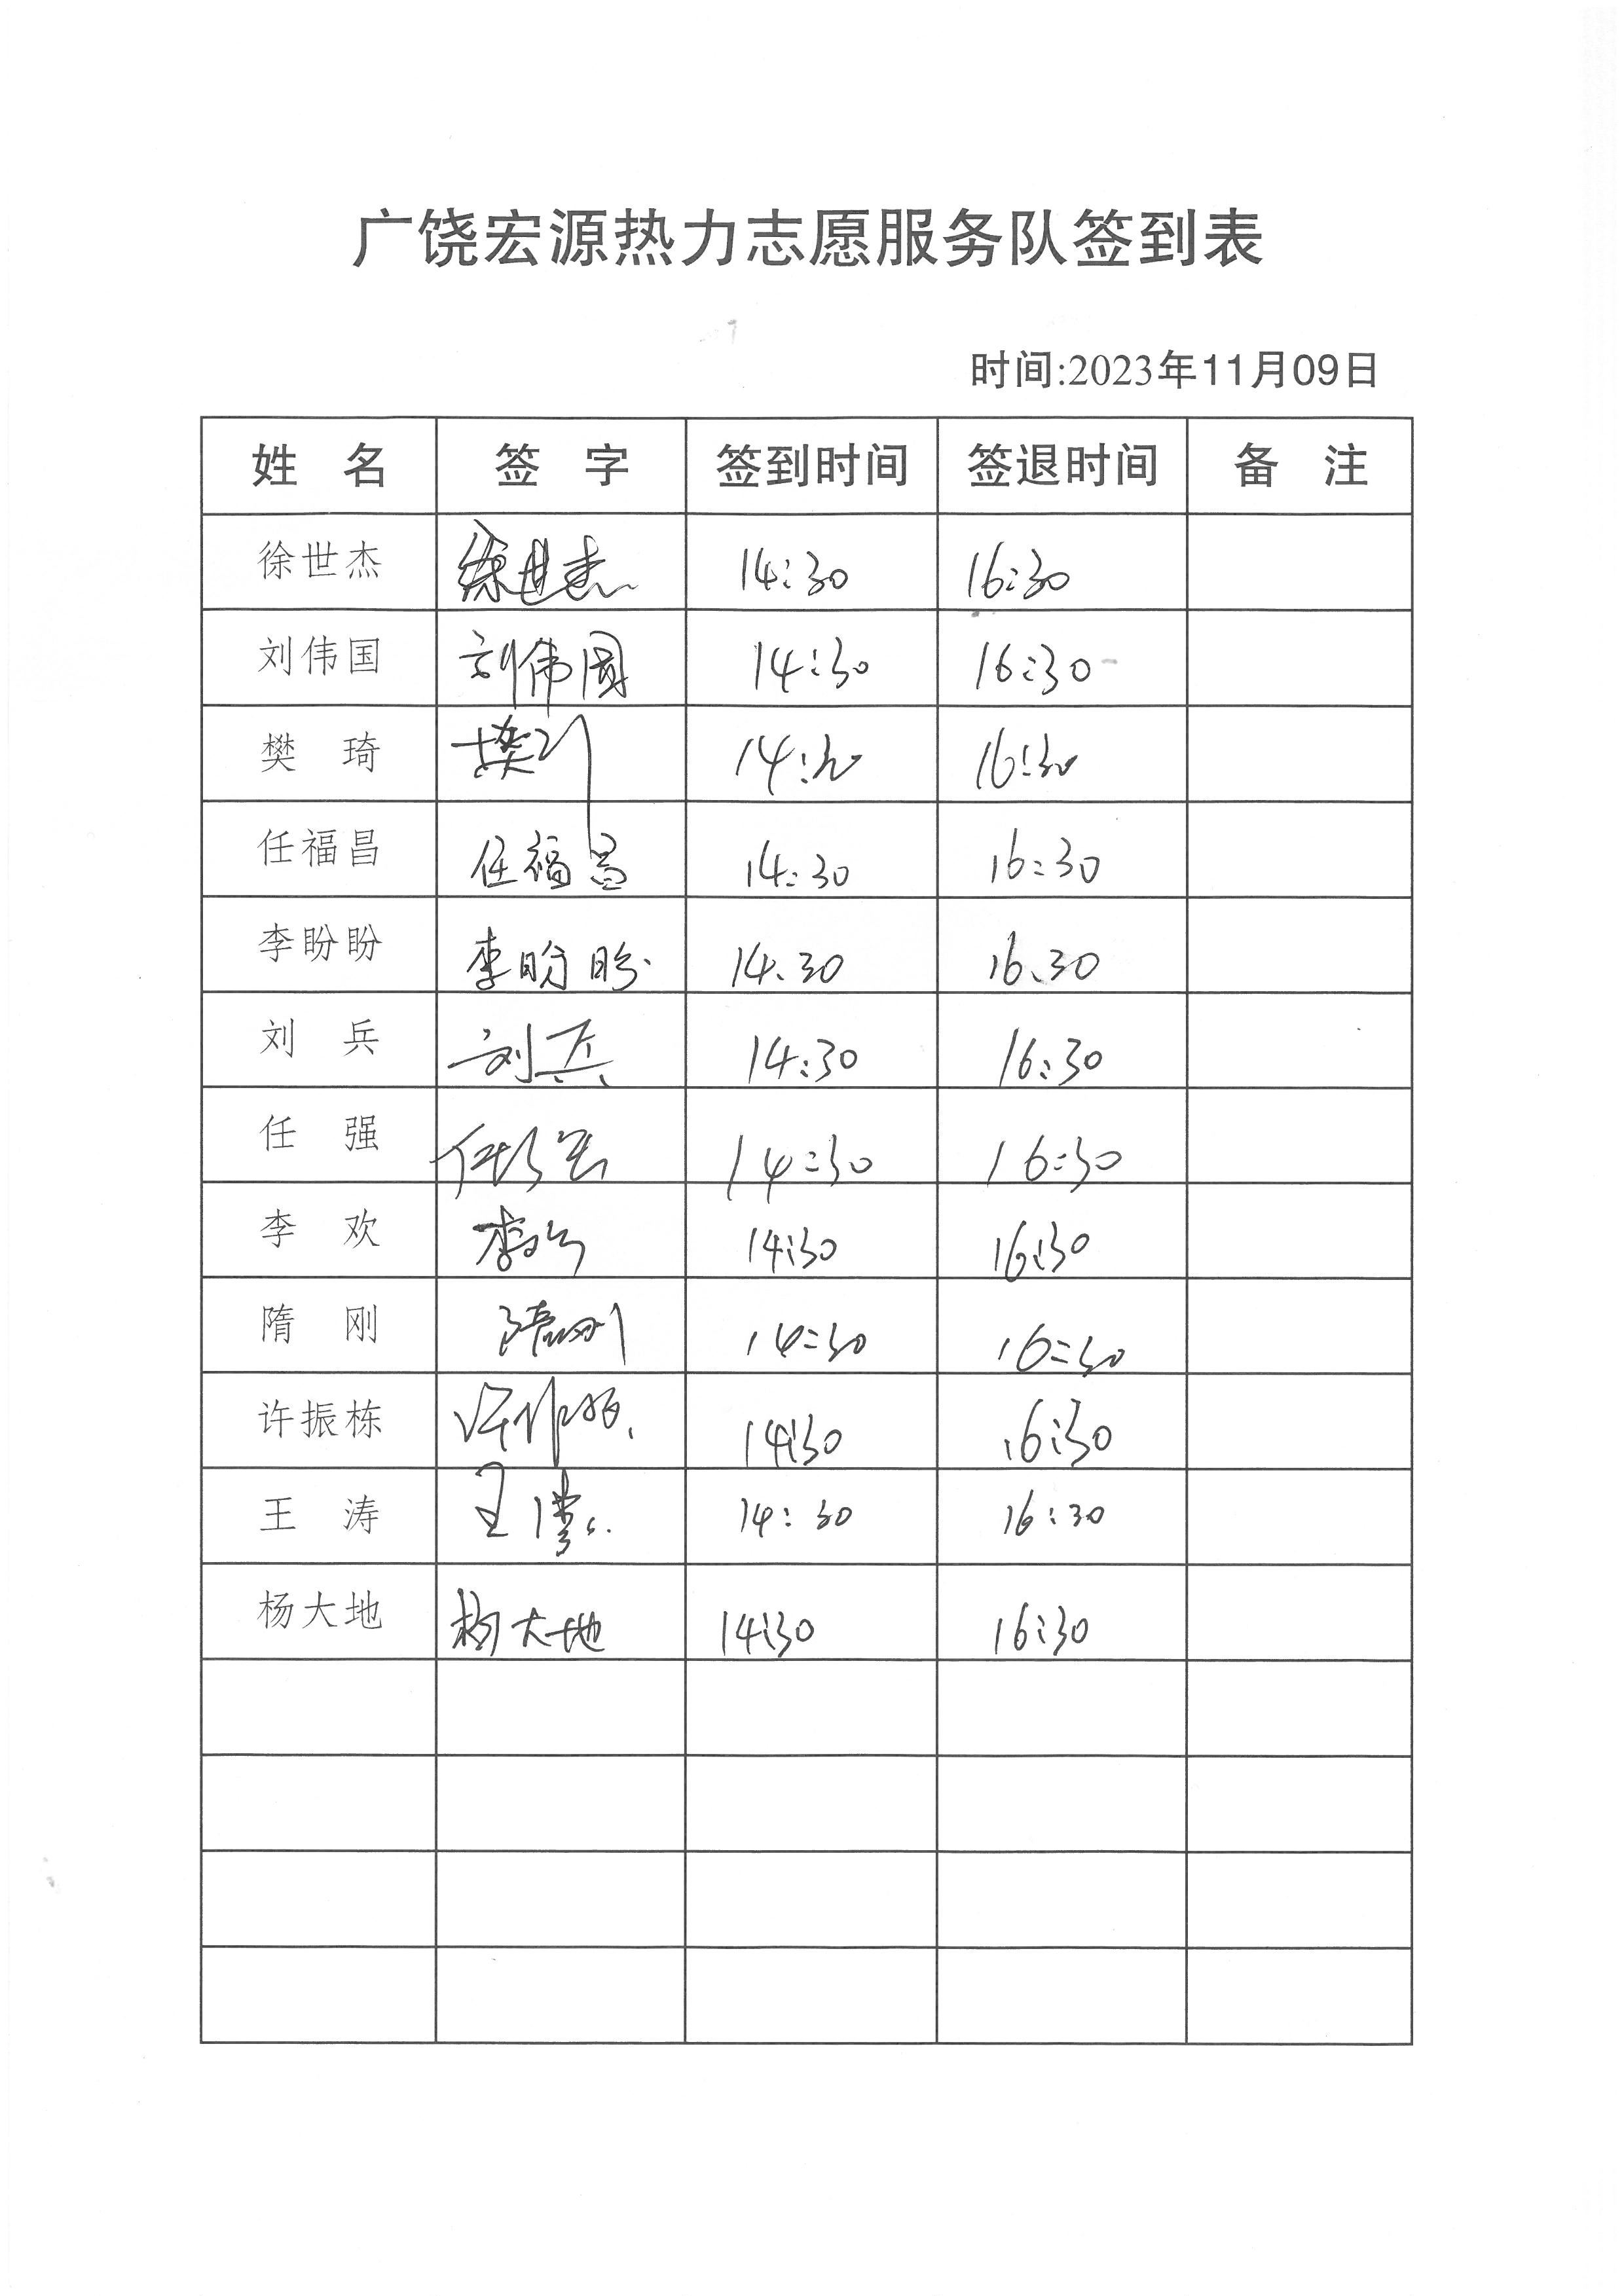 广饶宏源热力志愿服务队签到表
时间:2023年11月09日
姓 名 签 字 签到时间 签退时间 备 注
徐世杰 徐世杰 14:30 16:30
刘伟国 刘伟國 14:30 16:30
樊 琦 樊 14:30 16:30
任福昌 任福昌 14:30 16:30
李盼盼 李盼盼 14.30 16.30
刘 兵 刘兵 14:30 16:30
任 强 任强 14:30 16:30
李 欢 李欢 14:30 16:30
隋 刚 隋刚 14:30 16:30
许振栋 许振栋 14:30 16:30
王 涛 王涛 14:30 16:30
杨大地 杨大地 14:30 16:30